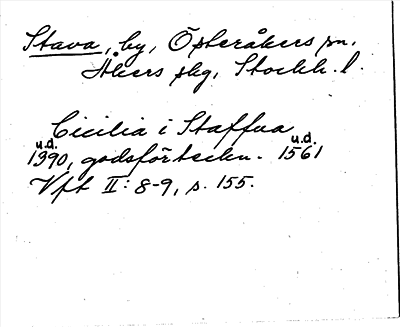 Stava, by, Österåkers sn,
Åkers skg, Stockh. l.
Cicilia i Staffua
u.d. u.d.
1390, godsförteckn. 1561
Vft II: 8-9, s. 155.